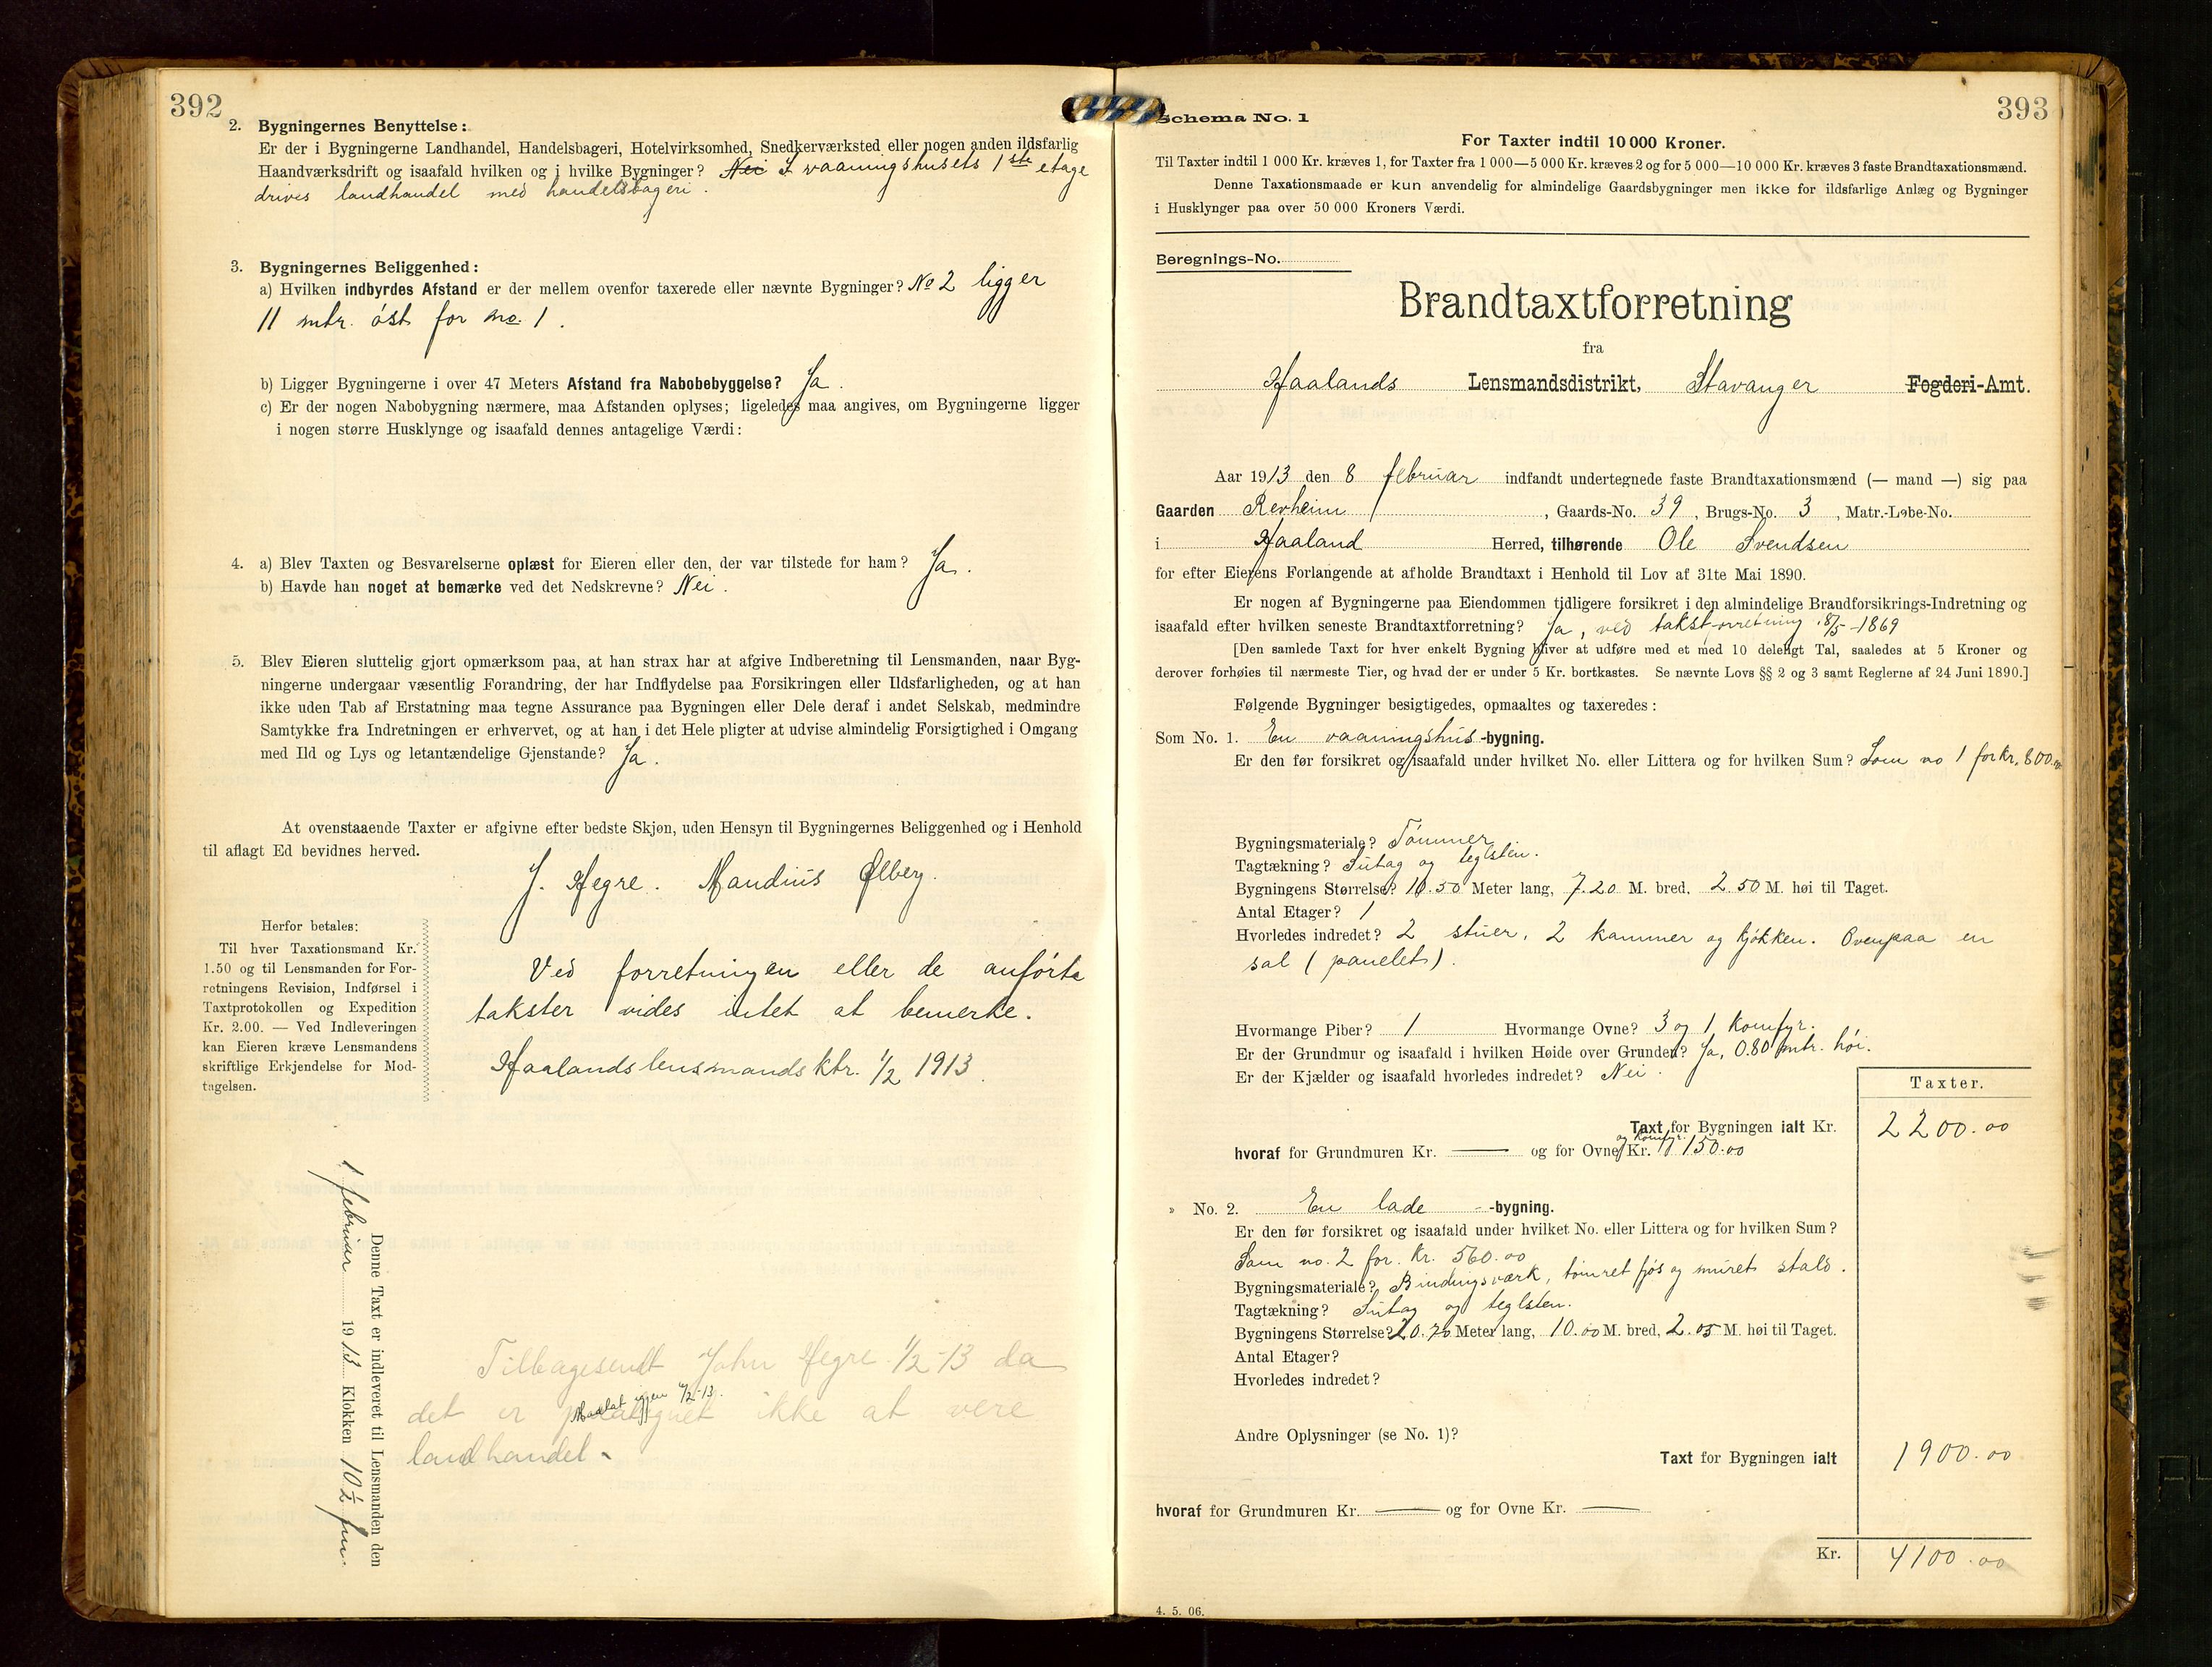 392
2. Bygningernes Benyttelse:
Er der i Bygningerne Landhandel, Handelsbageri, Hotelvirksomhed, Snedkerværksted eller nogen anden ildsfarlig
Haandværksdrift og isaafald hvilken og i hvilke Bygninger? Nei I vaaningshusets 1ste etage
drives landhandel med handelsbageri.
3. Bygningernes Beliggenhed:
a) Hvilken indbyrdes Afstand er der mellem ovenfor taxerede eller nævnte Bygninger? No 2 ligger
11 mtr. øst for no. 1.
b) Ligger Bygningerne i over 47 Meters Afstand fra Nabobebyggelse? Ja.
c) Er der nogen Nabobygning nærmere, maa Afstanden oplyses; ligeledes maa angives, om Bygningerne ligger
i nogen større Husklynge og isaafald dennes antagelige Værdi:
4. a) Blev Taxten og Besvarelserne oplæst for Eieren eller den, der var tilstede for ham? Ja.
b) Havde han noget at bemærke ved det Nedskrevne? Nei.
5. Blev Eieren sluttelig gjort opmærksom paa, at han strax har at afgive Indberetning til Lensmanden, naar Byg-
ningerne undergaar væsentlig Forandring, der har Indflydelse paa Forsikringen eller Ildsfarligheden, og at han
ikke uden Tab af Erstatning maa tegne Assurance paa Bygningen eller Dele deraf i andet Selskab, medmindre
Samtykke fra Indretningen er erhvervet, og at han i det Hele pligter at udvise almindelig Forsigtighed i Omgang
med Ild og Lys og letantændelige Gjenstande? Ja.
At ovenstaaende Taxter er afgivne efter bedste Skjøn, uden Hensyn til Bygningernes Beliggenhed og i Henhold
til aflagt Ed bevidnes herved.
J. Hegre. Maudius Ølberg.
Herfor betales:
Til hver Taxationsmand Kr.
1.50 og til Lensmanden for For-
retningens Revision, Indførsel i
Taxtprotokollen og Expedition
Kr. 2.00. — Ved Indleveringen
kan Eieren kræve Lensmandens
skriftlige Erkjendelse for Mod-
tagelsen.
Ved forretningen eller de anførte
takster vides intet at bemerke.
Haalands lensmandsktr. 1/2 1913.
Denne Taxt er indleveret til Lensmanden den
1 februar 1913 Klokken 10½ fm.
Tilbagesendt John Hegre 1/2-13 da
det er paategnet ikke at vere
Maalat igjen 4/2-13.
landhandel -
393
Schema No. 1
For Taxter indtil 10 000 Kroner.
Til Taxter indtil 1 000 Kr. kræves 1, for Taxter fra 1 000—5 000 Kr. kræves 2 og for 5 000—10 000 Kr. kræves 3 faste Brandtaxationsmænd.
Denne Taxationsmaade er kun anvendelig for almindelige Gaardsbygninger men ikke for ildsfarlige Anlæg og Bygninger
i Husklynger paa over 50 000 Kroners Værdi.
Beregnings-No.
Brandtaxtforretning
fra
Haalands Lensmandsdistrikt, Stavanger Fogderi-Amt.
Aar 1913 den 8 februar indfandt undertegnede faste Brandtaxationsmænd (— mand —) sig paa
Gaarden Revheim, Gaards-No. 39, Brugs-No. 3, Matr.-Løbe-No.
i Haaland Herred, tilhørende Ole Svendsen
for efter Eierens Forlangende at afholde Brandtaxt i Henhold til Lov af 31te Mai 1890.
Er nogen af Bygningerne paa Eiendommen tidligere forsikret i den almindelige Brandforsikrings-Indretning og
isaafald efter hvilken seneste Brandtaxtforretning? Ja, ved takstforretning 18/5-1869
[Den samlede Taxt for hver enkelt Bygning bliver at udføre med et med 10 deleligt Tal, saaledes at 5 Kroner og
derover forhøies til nærmeste Tier, og hvad der er under 5 Kr. bortkastes. Se nævnte Lovs §§ 2 og 3 samt Reglerne af 24 Juni 1890.]
Følgende Bygninger besigtigedes, opmaaltes og taxeredes:
Som No. 1. En vaaningshus-bygning.
Er den før forsikret og isaafald under hvilket No. eller Littera og for hvilken Sum? Som no 1 for kr. 800.00
Bygningsmateriale? Tømmer
Tagtækning? Sutag og teglsten.
Bygningens Størrelse? 10.50 Meter lang, 7.20 M. bred, 2.50 M. høi til Taget.
Antal Etager? 1
Hvorledes indredet? 2 stuer, 2 kammer og kjøkken. Ovenpaa en
sal (panelet).
Hvormange Piber? 1 Hvormange Ovne? 3 og 1 komfyr.
Er der Grundmur og isaafald i hvilken Høide over Grunden? Ja, 0.80 mtr. høi.
Er der Kjælder og isaafald hvorledes indredet? Nei.
Taxter.
Taxt for Bygningen ialt Kr. 2200.00
hvoraf for Grundmuren Kr. — og for Ovne og komfyr. Kr. 150.00
» No. 2. En lade -bygning.
Er den før forsikret og isaafald under hvilket No. eller Littera og for hvilken Sum?
Som no. 2 for. kr. 560.00
Bygningsmateriale? Bindingsværk, tømret fjøs og muret stald.
Tagtækning? Sutag og teglsten.
Bygningens Størrelse? 20.70 Meter lang, 10.00 M. bred, 2.05 M. høi til Taget.
Antal Etager?
Hvorledes indredet?
Andre Oplysninger (se No. 1)?
Taxt for Bygningen ialt 1900.00
hvoraf for Grundmuren Kr. — og for Ovne Kr. —
Kr. 4100.00
4. 5. 06.